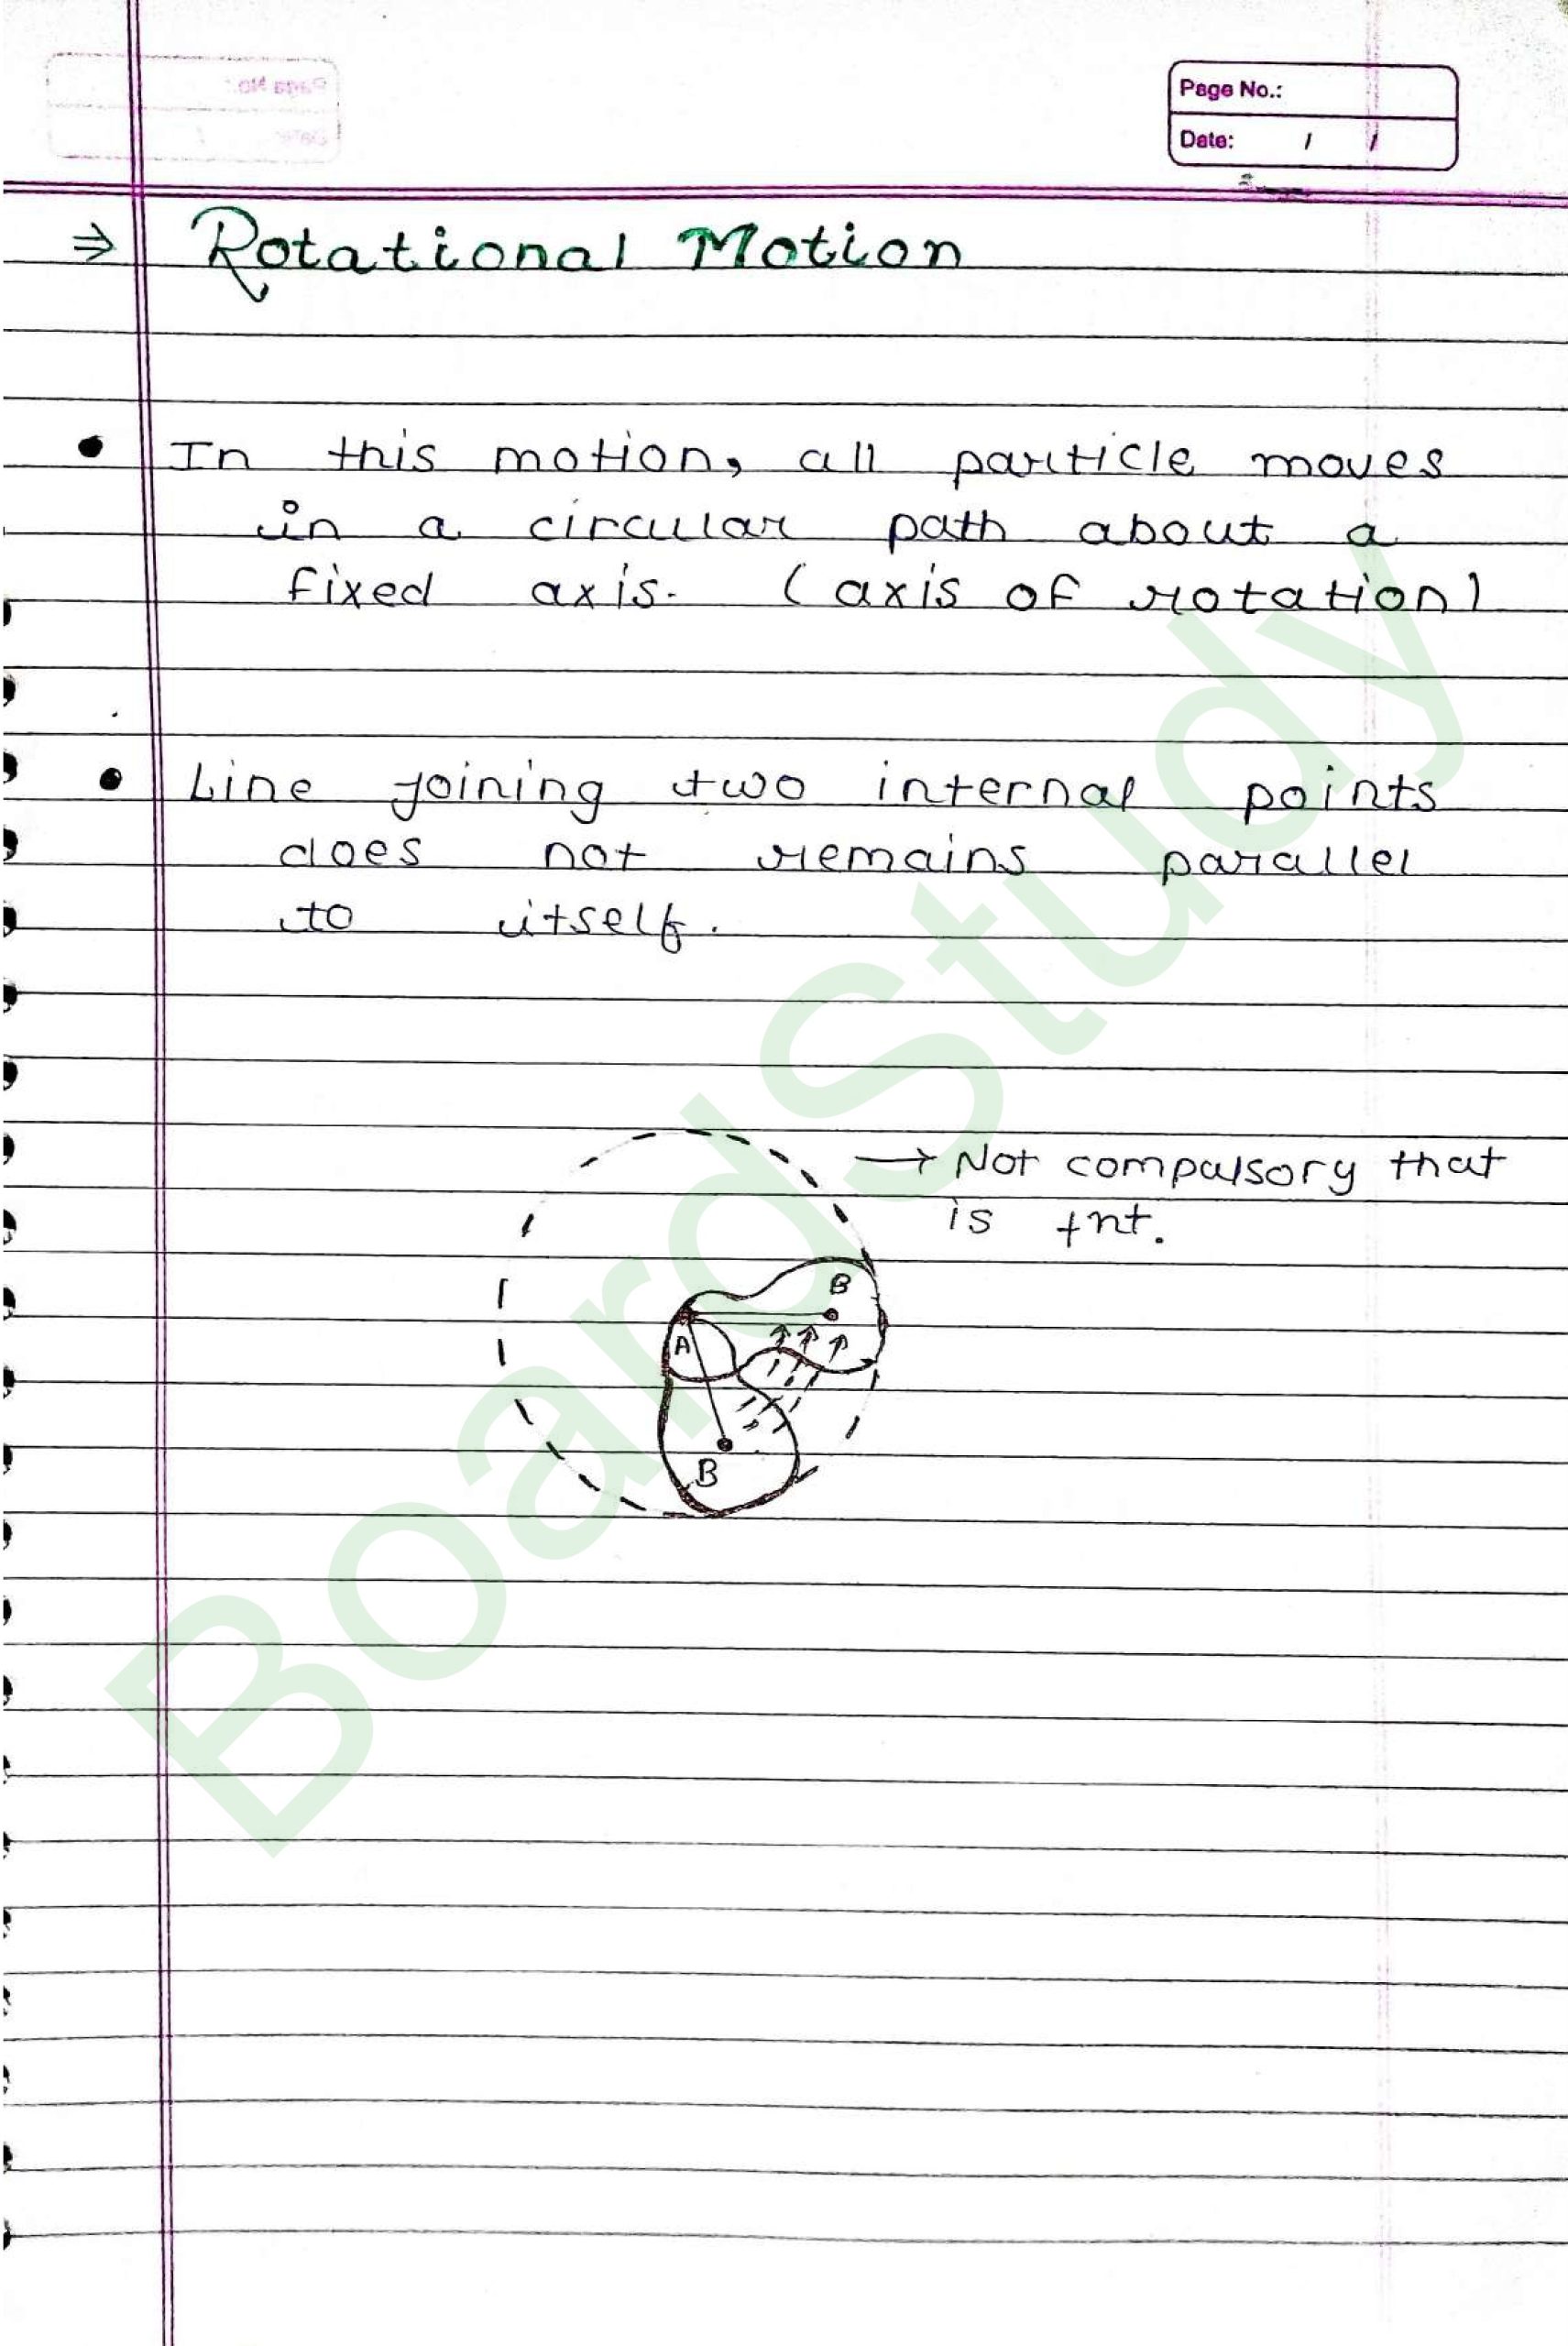 Page No.:
Date: / /
⇒ Rotational Motion
• In this motion, all particle moves
in a circular path about a
fixed axis. (axis of rotation)
• Line joining two internal points
does not remains parallel
to itself.
→ Not compulsory that
is
B
A
B
BoardStudy